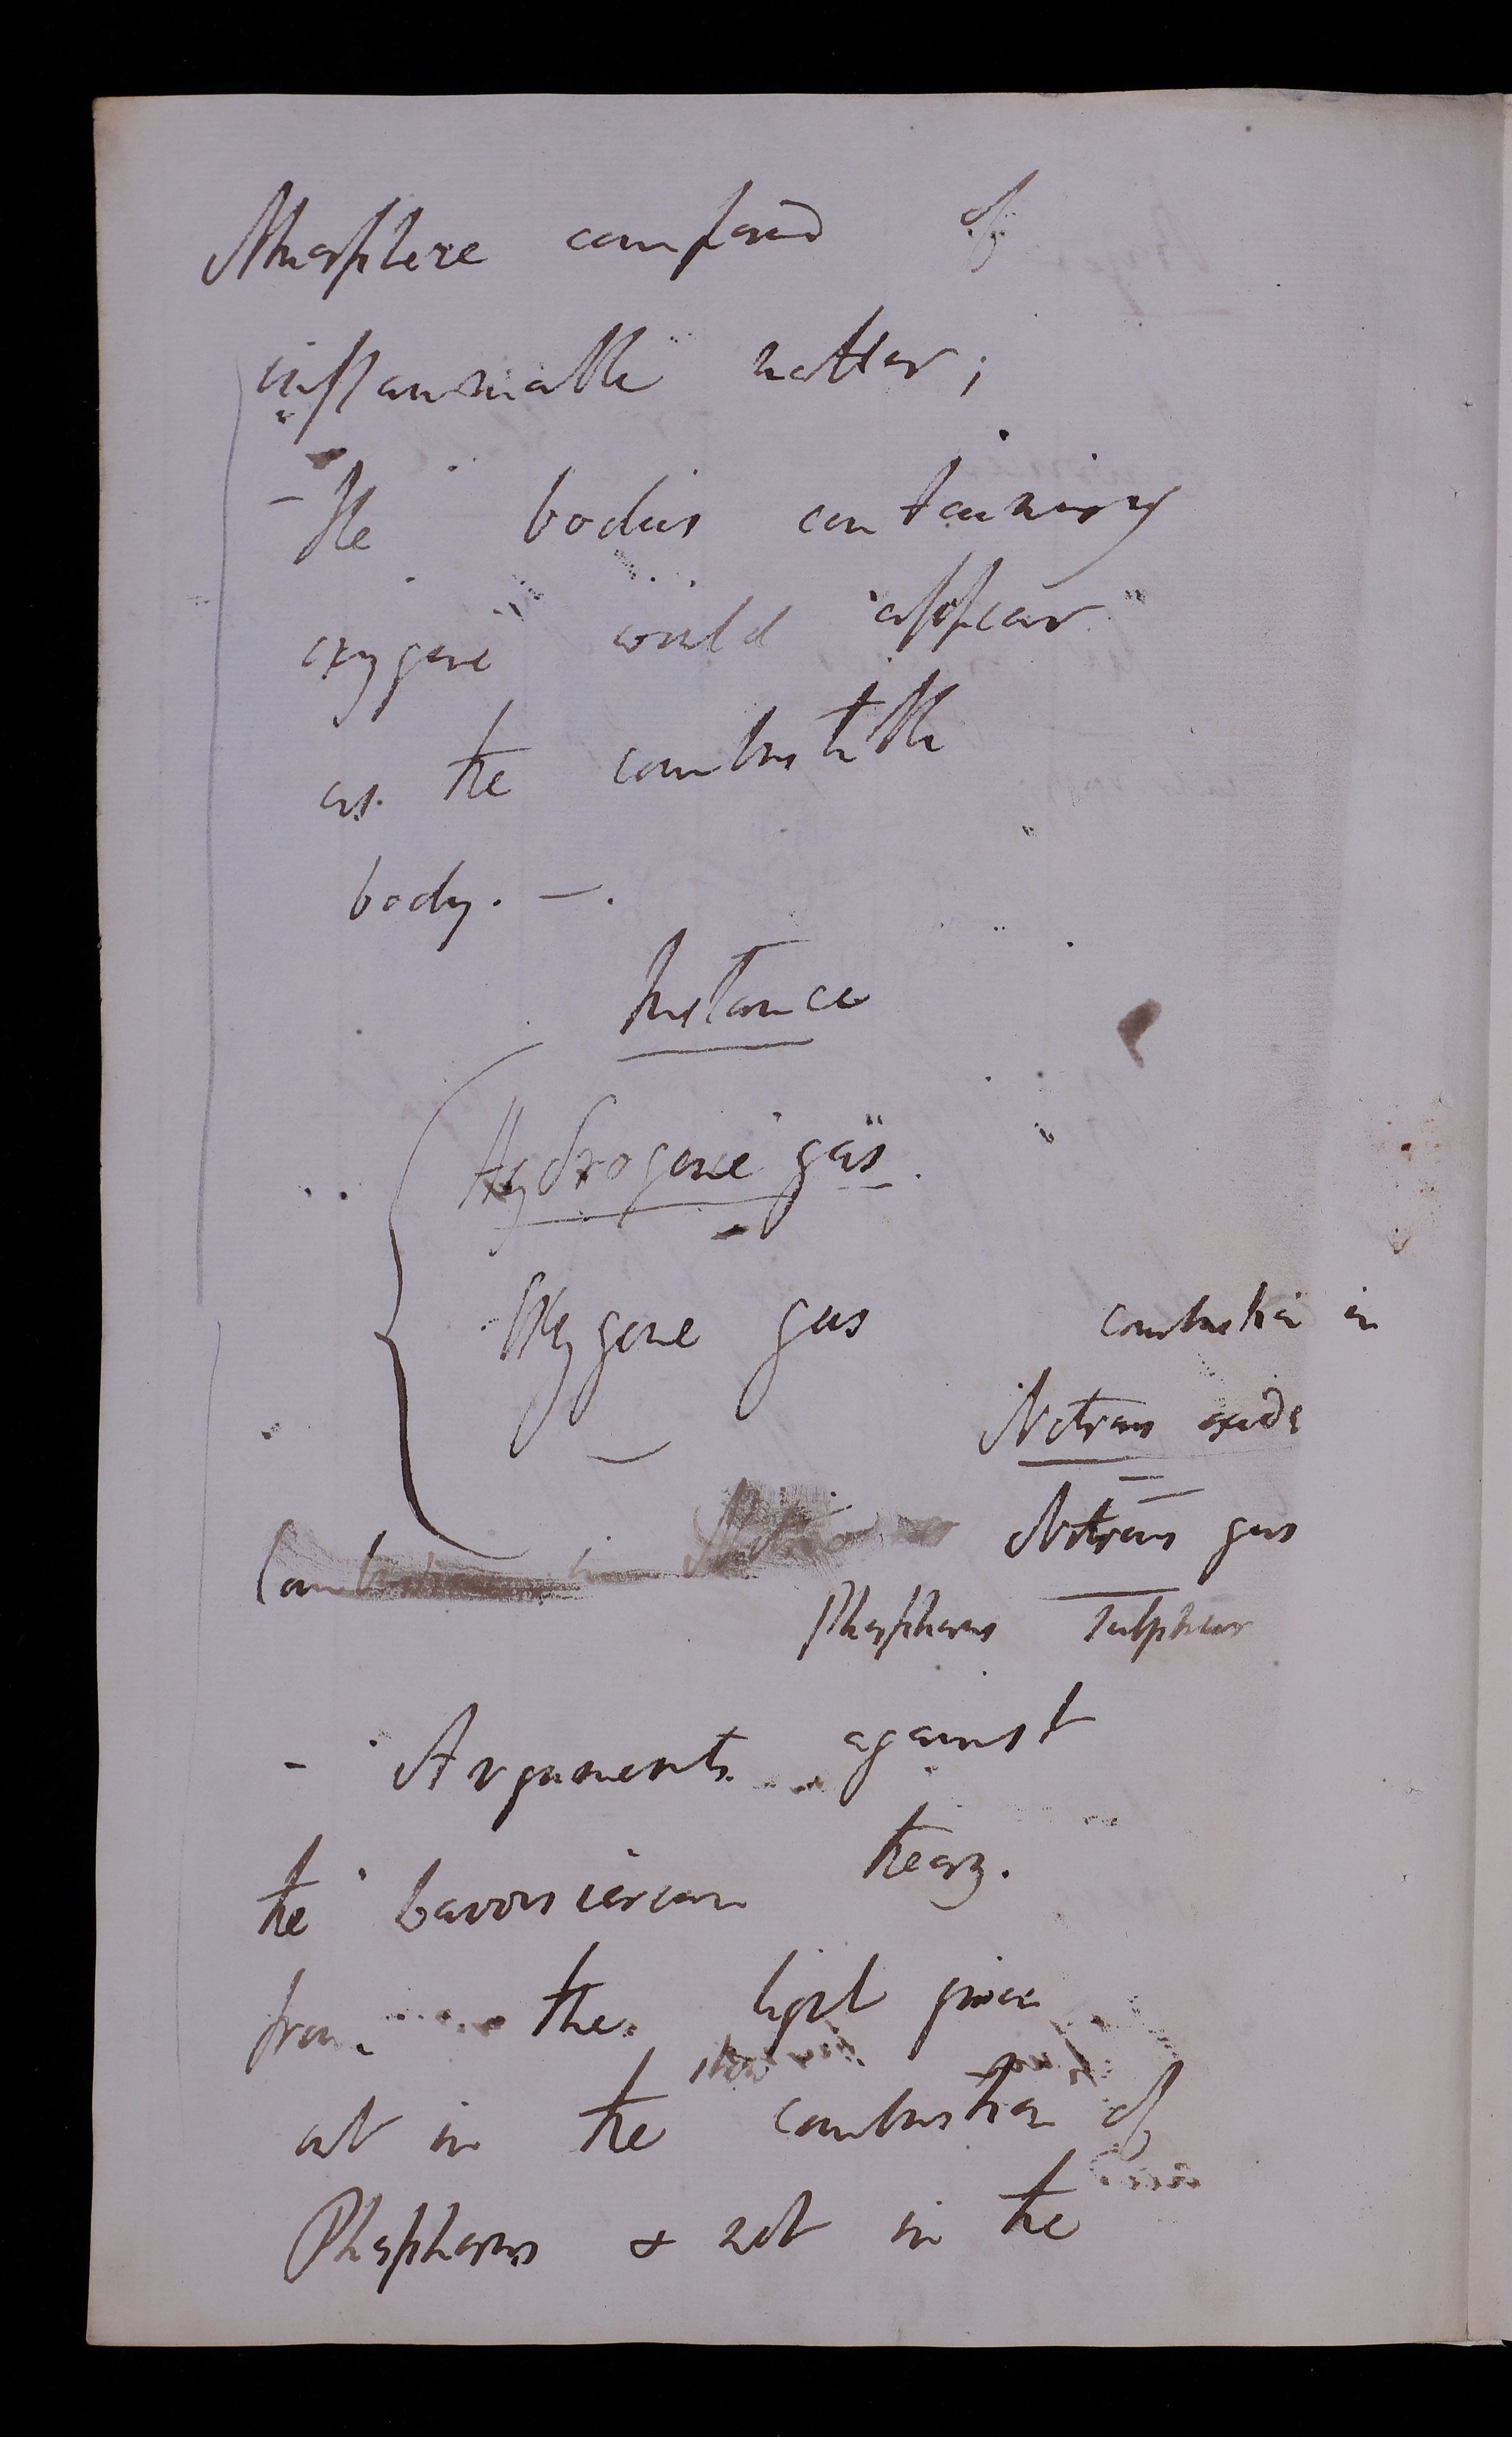 Atmosphere composed of
inflammable matter;
– the bodies containing
oxygene would appear
as the combustible
body. –.
Instance
Hydrogene gas.
Oxygene gas
combustion in
Nitrous oxide
Nitrous gas
Combustion in Nitrous
Phosphorus Sulphur
– Arguments against
the Lavoisierean theory.
from the light given
out in the combustion of
Phosphorus & not in the